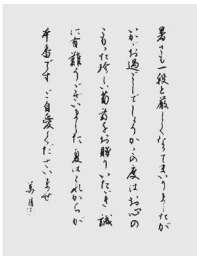 暑さも一段と厳しくなってまいりましたが
いかがお過ごしでしょうか この度はお心の
こもった珍しい菊苗をお贈りいただき誠
に有難うございました 夏はこれからが
本番です ご自愛くださいませ